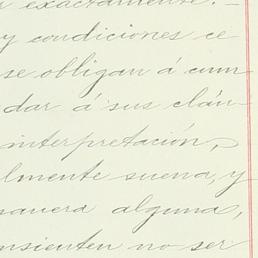 exactamente. –
y condiciones ce
se obligan á cum
dar á sus cláu
interpretación,
lmente suena, y
manera alguna,
nsienten no ser